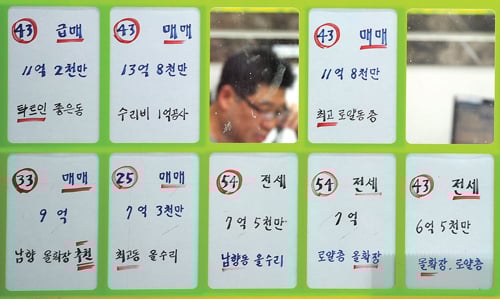 43 급매
11억 2천만
탁트인 좋은동
43 매매
13억 8천만
수리비 1억공사
43 매매
11억 8천만
최고 로얄동층
33 매매
9억
남향 올확장 추천
25 매매
7억 3천만
최고동 올수리
54 전세
7억 5천만
남향동 올수리
54 전세
7억
로얄층 올확장
43 전세
6억 5천만
올확장, 로얄층